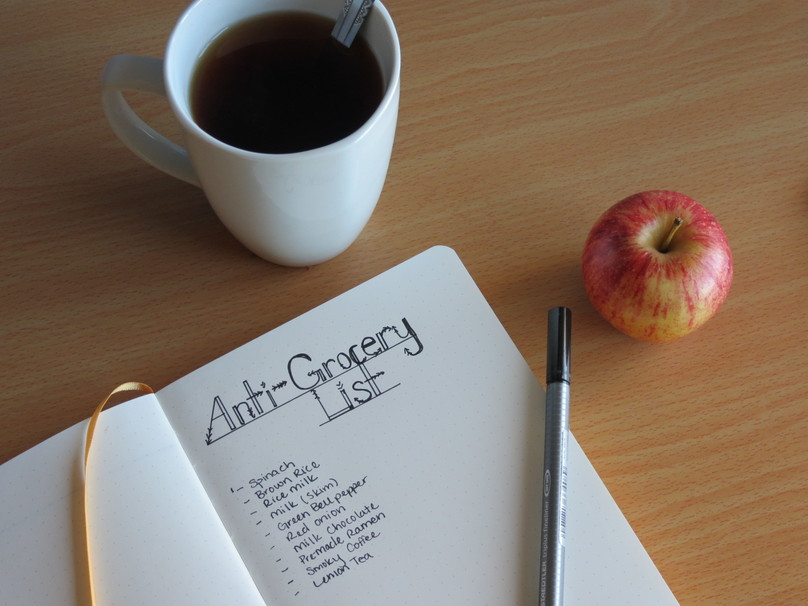 Anti-Grocery
List
- Spinach
- Brown Rice
- Rice milk
- milk (skim)
- Green Bell pepper
- Red onion
- milk chocolate
- Premade Ramen
- Smoky Coffee
- Lemon Tea
STAEDTLER